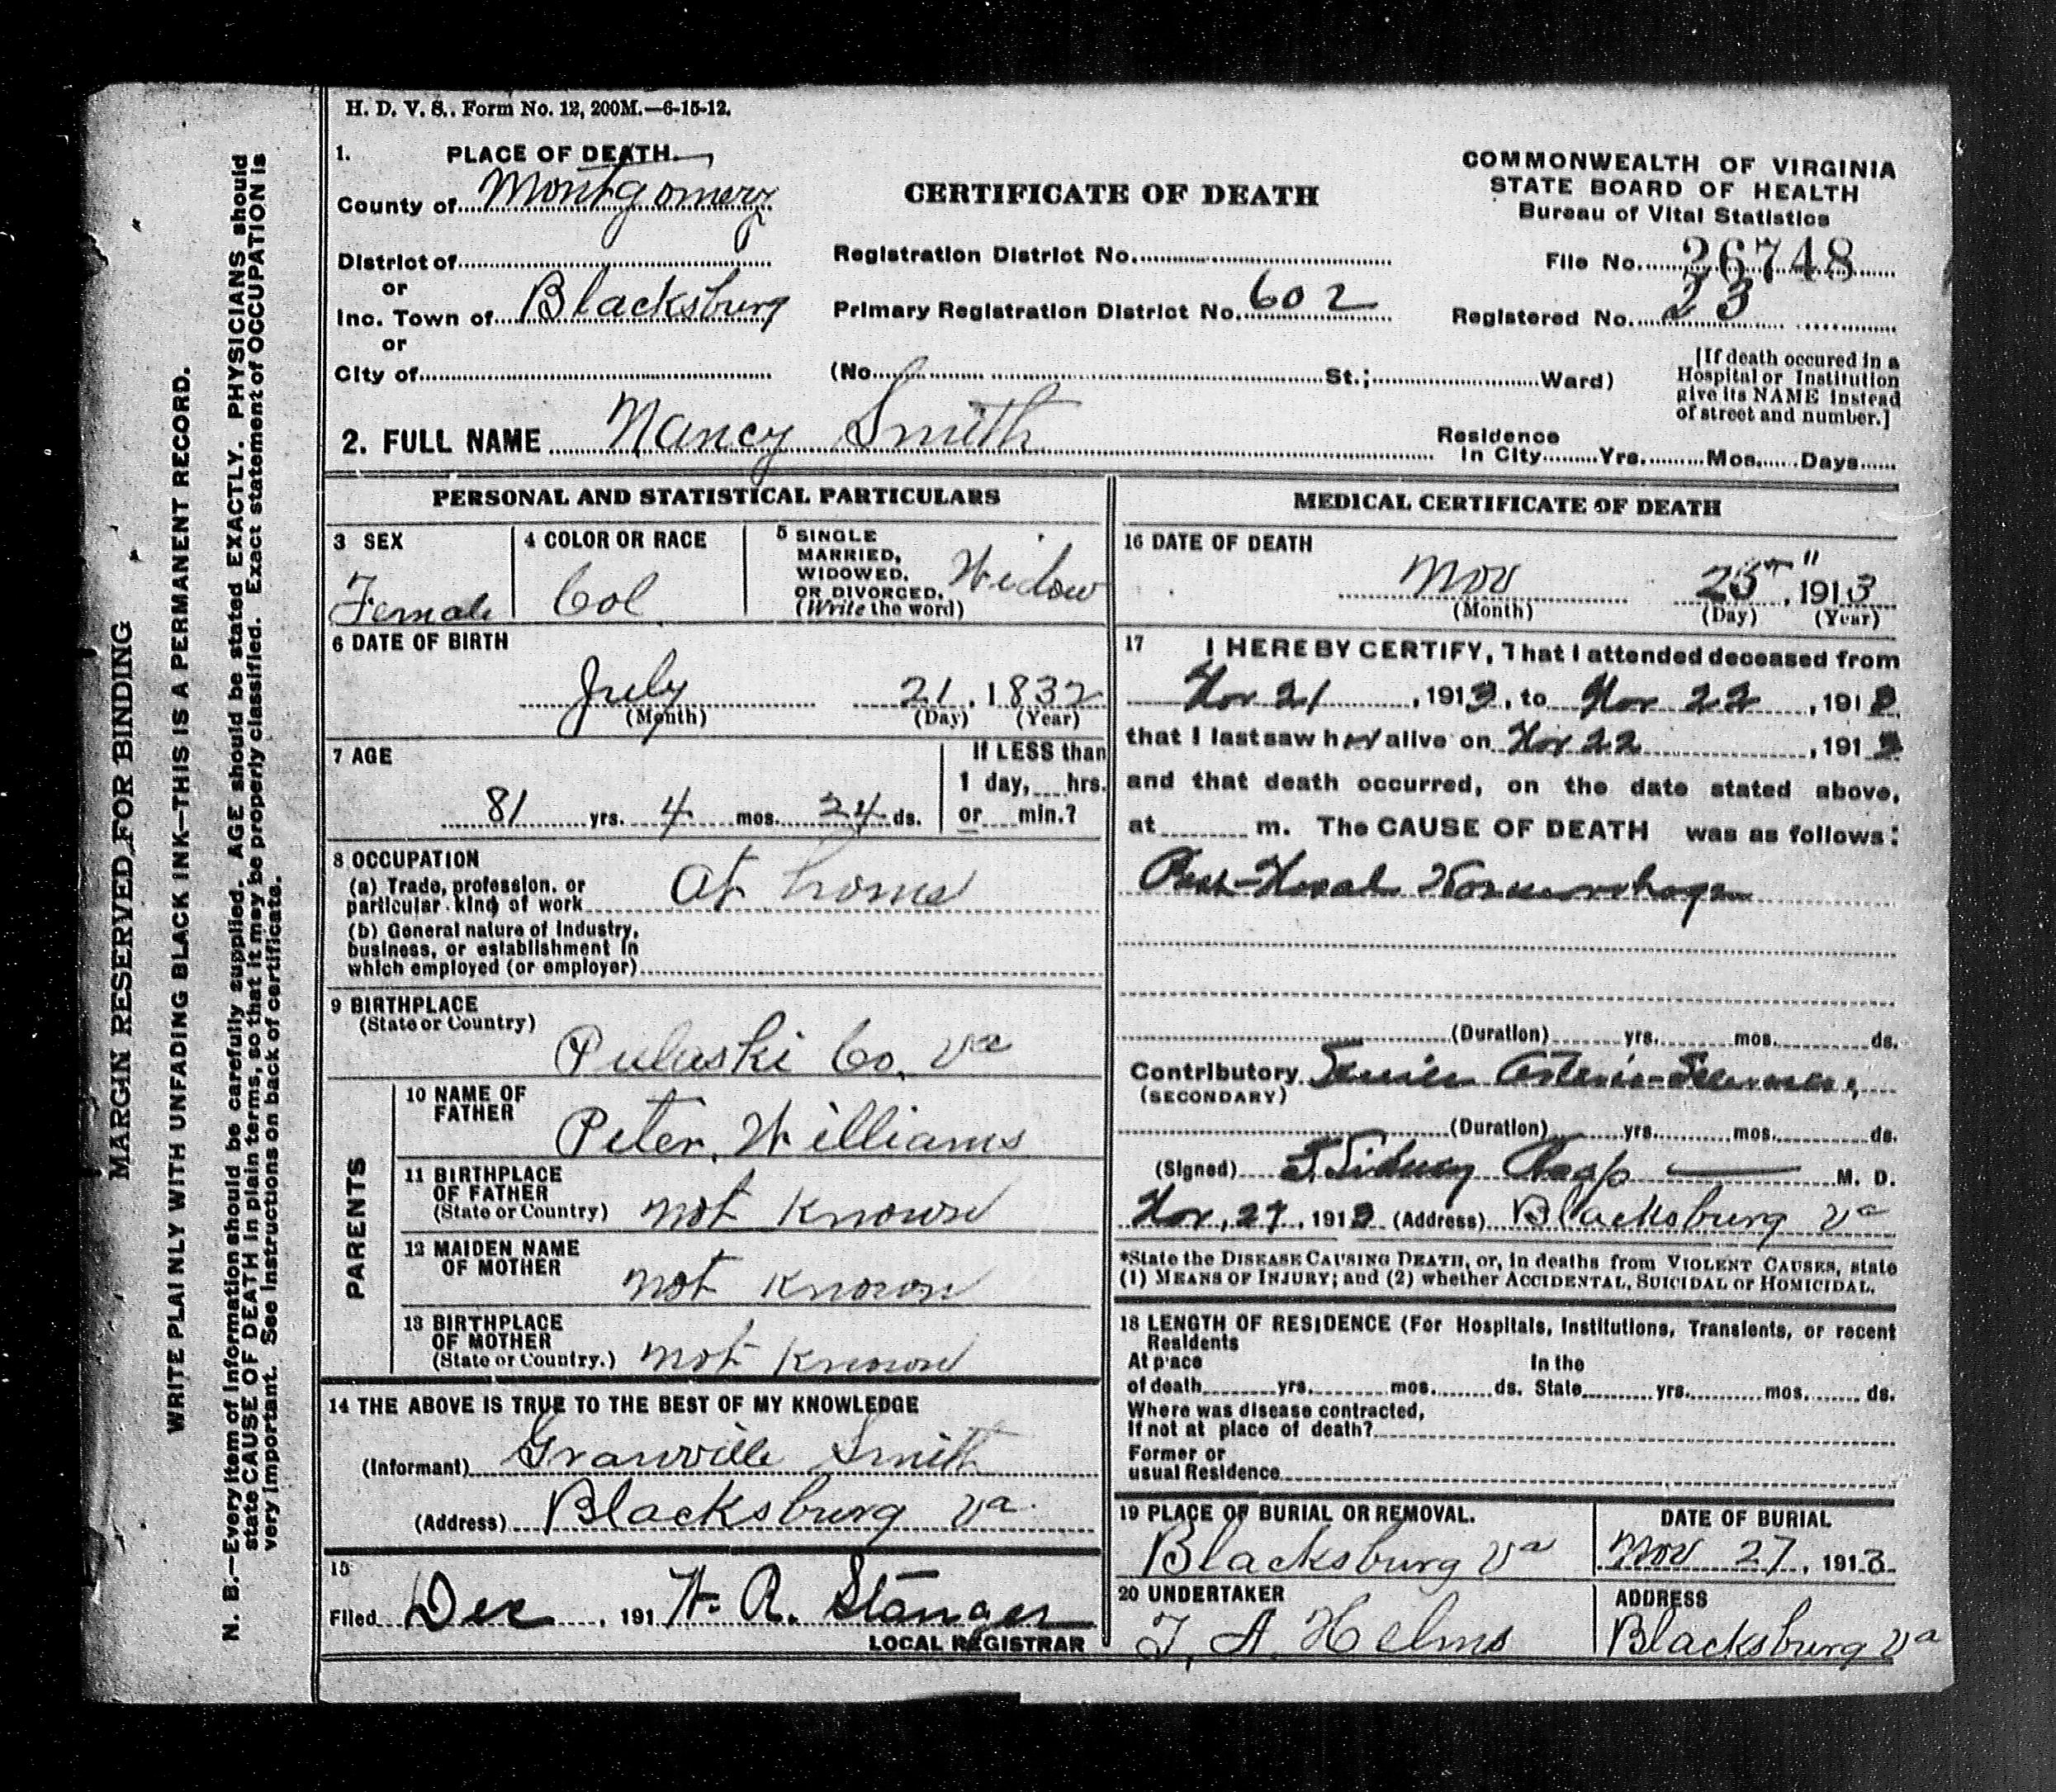 H. D. V. S.. Form No. 12, 200M.—6-15-12.
1. PLACE OF DEATH.
County of Montgomery
District of
or
Inc. Town of Blacksburg
or
City of
CERTIFICATE OF DEATH
Registration District No.
Primary Registration District No. 602
(No. St.; Ward)
COMMONWEALTH OF VIRGINIA
STATE BOARD OF HEALTH
Bureau of Vital Statistics
File No. 26748
Registered No. 23
[If death occured in a
Hospital or Institution
give its NAME instead
of street and number.]
2. FULL NAME Nancy Smith
Residence
In City Yrs. Mos. Days
PERSONAL AND STATISTICAL PARTICULARS
3 SEX
Female
4 COLOR OR RACE
Col
5 SINGLE
MARRIED,
WIDOWED,
OR DIVORCED.
(Write the word)
Widow
6 DATE OF BIRTH
July 21, 1832
(Month) (Day) (Year)
7 AGE
81 yrs. 4 mos. 24 ds.
If LESS than
1 day, hrs.
or min.?
8 OCCUPATION
(a) Trade, profession, or
particular kind of work At home
(b) General nature of Industry,
business, or establishment in
which employed (or employer)
9 BIRTHPLACE
(State or Country)
Pulaski Co. Va
PARENTS
10 NAME OF
FATHER
Peter Williams
11 BIRTHPLACE
OF FATHER
(State or Country) not Known
12 MAIDEN NAME
OF MOTHER
not Known
13 BIRTHPLACE
OF MOTHER
(State or Country.) not Known
14 THE ABOVE IS TRUE TO THE BEST OF MY KNOWLEDGE
(Informant) Granville Smith
(Address) Blacksburg Va.
15
Filed Dec , 191 R. Stanger
LOCAL REGISTRAR
MEDICAL CERTIFICATE OF DEATH
16 DATE OF DEATH
Nov 25th, 1913
(Month) (Day) (Year)
17 I HEREBY CERTIFY, That I attended deceased from
Nov 21, 1913, to Nov 22, 1913
that I last saw her alive on Nov 22, 1913
and that death occurred, on the date stated above,
at m. The CAUSE OF DEATH was as follows:
(Duration) yrs. mos. ds.
Contributory
(SECONDARY)
(Duration) yrs. mos. ds.
(Signed) Sidney M. D.
Nov, 27, 1913 (Address) Blacksburg Va
*State the DISEASE CAUSING DEATH, or, in deaths from VIOLENT CAUSES, state
(1) MEANS OF INJURY; and (2) whether ACCIDENTAL, SUICIDAL or HOMICIDAL.
18 LENGTH OF RESIDENCE (For Hospitals, Institutions, Transients, or recent
Residents
At p'ace In the
of death yrs. mos. ds. State yrs. mos. ds.
Where was disease contracted,
If not at place of death?
Former or
usual Residence
19 PLACE OF BURIAL OR REMOVAL.
Blacksburg Va
DATE OF BURIAL
Nov 27, 1913
20 UNDERTAKER
T. A. Helms
ADDRESS
Blacksburg Va
MARGIN RESERVED FOR BINDING
WRITE PLAINLY WITH UNFADING BLACK INK—THIS IS A PERMANENT RECORD.
N. B.—Every item of information should be carefully supplied. AGE should be stated EXACTLY. PHYSICIANS should
state CAUSE OF DEATH in plain terms, so that it may be properly classified. Exact statement of OCCUPATION is
very important. See instructions on back of certificate.